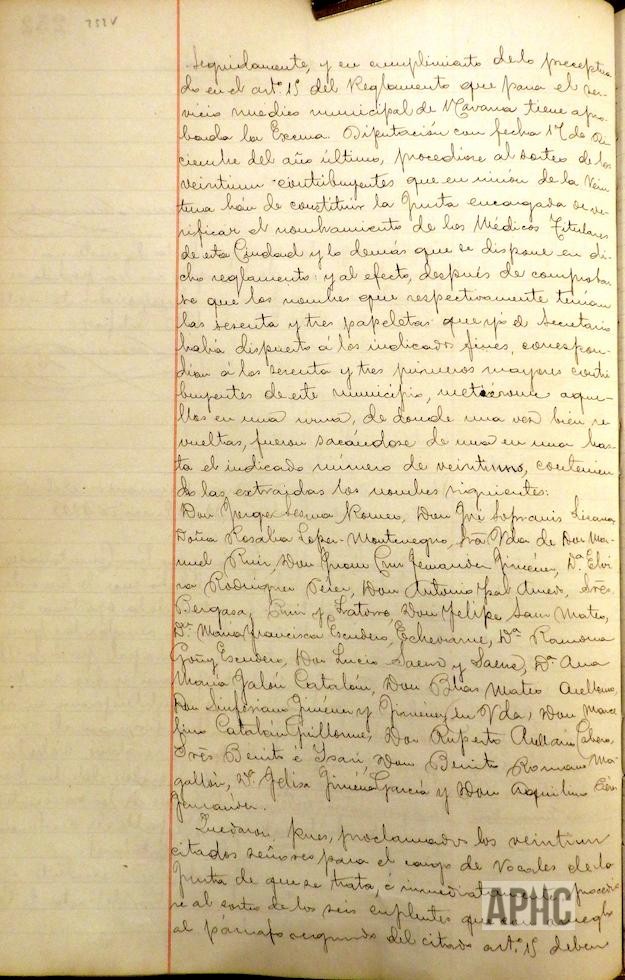 Seguidamente, y en cumplimiento de lo preceptua
do en el artº 15 del Reglamento que para el ser-
vicio médico municipal de Navarra tiene apro-
bado la Excma. Diputación con fecha 17 de Di
ciembre del año último, procedióse al sorteo de los
veintiun contribuyentes que en unión de la Vein
tena han de constituir la Junta encargada de ve-
rificar el nombramiento de los Médicos Titulares
de esta Ciudad y lo demás que se dispone en di
cho reglamento: y al efecto, después de comprobar
se que los nombres que respectivamente tenían
las sesenta y tres papeletas que yo el Secretario
había dispuesto á los indicados fines, correspon-
dían á los sesenta y tres primeros mayores contri
buyentes de este municipio, metiéronse aque-
llos en una urna, de donde una vez bien re-
vueltas, fueron sacándose de una en una has-
ta el indicado número de veintiuno, contenien
do las extraidas los nombres siguientes:
Don Jorge Lerma Romeo, Don José Sopranis
Doña Rosalia Lopez-Montenegro, Sra Vda de Don Ma-
nuel Ruiz, Don Juan Cruz Fernandez Jiménez, Dª Elvi
ra Rodriguez Don Antonio Sres.
Bergasa, Ruiz y Don Felipe Sanz Mateo,
Dª Maria Francisca Escudero, Echevarria, Dª Ramona
Goñy Escudero, Don Lucio Saenz y Saenz, Dª Ana
Maria Jalón Catalán, Don Blas Mateo Arellano,
Don Sinforiano Jiménez y Vda, Don Marce
lino Catalán Guillorme, Don Ruperto
Sres Benito é Don Benito Romano Ma
gallón, Dª Felisa Jiménez Garcia y Don Aquilino
Fernandez.
Quedaron, pues, proclamados los veintiun
citados señores para el cargo de Vocales de la
Junta de que se trata, é inmediatamente procedió
se al sorteo de los seis suplentes que con arreglo
al párrafo segundo del citado artº 15 deben
APHC